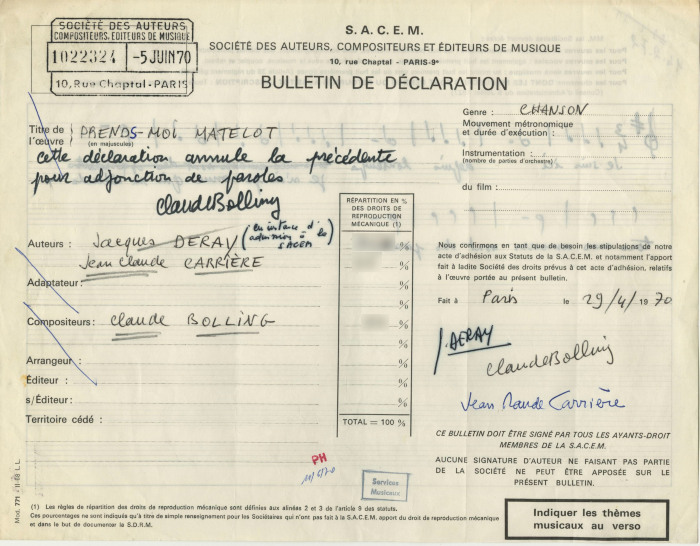 SOCIÉTÉ DES AUTEURS,
COMPOSITEURS, EDITEURS DE MUSIQUE
1022324 -5 JUIN 70
10, Rue Chaptal - PARIS
S.A.C.E.M.
SOCIÉTÉ DES AUTEURS, COMPOSITEURS ET ÉDITEURS DE MUSIQUE
10, rue Chaptal - PARIS-9e
BULLETIN DE DÉCLARATION
Titre de l'œuvre (en majuscules) PRENDS-MOI MATELOT
cette déclaration annule la précédente
pour adjonction de paroles
Claude Bolling
Genre : CHANSON
Mouvement métronomique
et durée d'exécution :
Instrumentation :
(nombre de parties d'orchestre)
du film :
RÉPARTITION EN %
DES DROITS DE
REPRODUCTION
MÉCANIQUE (1)
Auteurs : Jacques DERAY (en instance d'admission à la SACEM) %
Jean Claude CARRIÈRE %
Adaptateur : %
Compositeurs : Claude BOLLING %
%
Arrangeur : %
Éditeur : %
s/Éditeur : %
Territoire cédé :
TOTAL = 100 %
Nous confirmons en tant que de besoin les stipulations de notre
acte d'adhésion aux Statuts de la S.A.C.E.M. et notamment l'apport
fait à ladite Société des droits prévus à cet acte d'adhésion, relatifs
à l'œuvre portée au présent bulletin.
Fait à Paris le 29/4/1970
J. DERAY
Claude Bolling
Jean Claude Carrière
CE BULLETIN DOIT ÊTRE SIGNÉ PAR TOUS LES AYANTS-DROIT
MEMBRES DE LA S.A.C.E.M.
AUCUNE SIGNATURE D'AUTEUR NE FAISANT PAS PARTIE
DE LA SOCIÉTÉ NE PEUT ÊTRE APPOSÉE SUR
LE PRÉSENT BULLETIN.
PH
11/6/70
Services
Musicaux
Mod. 771 - II-68 L.L.
(1) Les règles de répartition des droits de reproduction mécanique sont définies aux alinéas 2 et 3 de l'article 9 des statuts.
Ces pourcentages ne sont indiqués qu'à titre de simple renseignement pour les Sociétaires qui n'ont pas fait à la S.A.C.E.M. apport du droit de reproduction mécanique
et dans le but de documenter la S.D.R.M.
Indiquer les thèmes
musicaux au verso